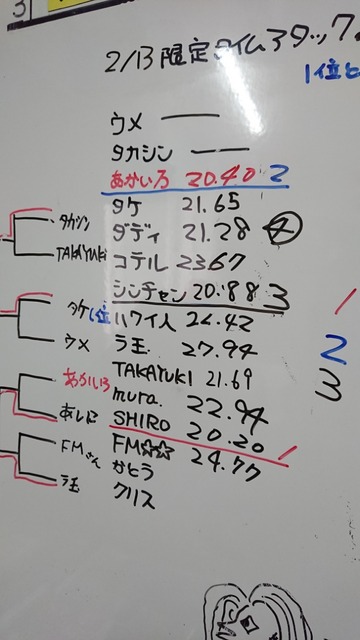 3
2/13 限定タイムアタック
1位と
ウメ ——
タカシン ——
あかいろ 20.40 2
タケ 21.65
ダディ 21.28 4
コテル 23.67
シンチャン 20.88 3
ハワイ人 22.42
ラ王 27.94
TAKAYUKI 21.69
mura. 22.94
SHIRO 20.20 1
FM☆☆ 24.77
かとう
クリス
タカシン
TAKAYUKI
タケ 1位
ウメ
あかいろ
FMさん
ラ王
1
2
3